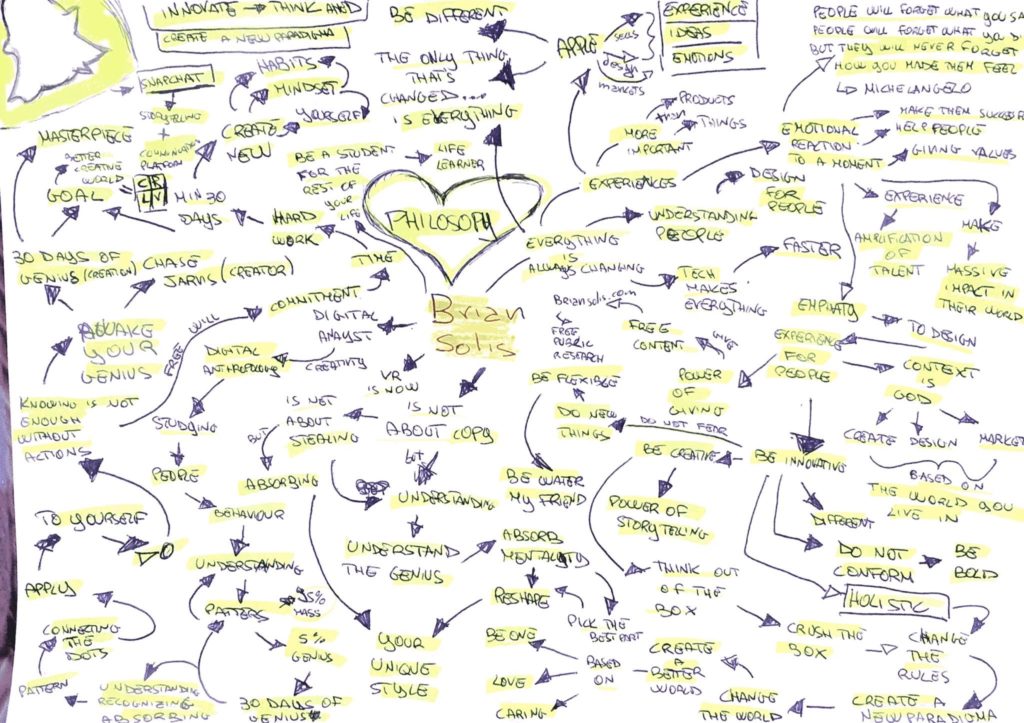 INNOVATE → THINK AHED
CREATE A NEW PARADIGMA
SNAPCHAT
STORYTELLING
+
PLATFORM
HABITS
MINDSET
YOURSELF
CREATE
NEW
MASTERPIECE
BETTER
CREATIVE
WORLD
GOAL =
MIN 30
DAYS
HARD
WORK
BE A STUDENT
FOR THE
REST OF
YOUR
LIFE
LIFE
LEARNER
BE DIFFERENT
THE ONLY THING
THAT'S
CHANGED...
IS EVERYTHING
APPLE
SELLS
DESIGN
MARKETS
EXPERIENCE
IDEAS
EMOTIONS
PEOPLE WILL FORGET WHAT YOU SA
PEOPLE WILL FORGET WHAT YOU D
BUT THEY WILL NEVER FORGET
HOW YOU MADE THEM FEEL
MICHELANGELO
PRODUCTS
THAN
THINGS
MORE
IMPORTANT
EXPERIENCES
EMOTIONAL
REACTION
TO A MOMENT
MAKE THEM SUCCE
HELP PEOPLE
GIVING VALUES
DESIGN
FOR
PEOPLE
UNDERSTANDING
PEOPLE
EXPERIENCE
AMPLIFICATION
OF
TALENT
MAKE
MASSIVE
IMPACT IN
THEIR WORLD
PHILOSOPY
EVERYTHING
IS
ALWAYS CHANGING
TECH
MAKES
EVERYTHING
FASTER
30 DAYS OF
GENIUS (CREATION)
CHASE
JARVIS (CREATOR)
TIME
COMMITMENT
FREE WILL
AWAKE
YOUR
GENIUS
KNOWING IS NOT
ENOUGH
WITHOUT
ACTIONS
Brian
Solis
DIGITAL
ANALYST
CREATIVITY
DIGITAL
ANTHROPOLOGY
STUDYING
PEOPLE
BEHAVIOUR
UNDERSTANDING
PATTERS
95%
MASS
5%
GENIUS
30 DAYS OF
GENIUS
UNDERSTANDING
RECOGNIZING
ABSORBING
PATTERN
CONNECTING
THE
DOTS
APPLY
TO YOURSELF
VR
IS NOW
IS NOT
ABOUT COPY
IS NOT
ABOUT
STEALING
BUT
ABSORBING
but
UNDERSTANDING
UNDERSTAND
THE GENIUS
ABSORB
MENTALITY
RESHAPE
PICK THE
BEST PART
YOUR
UNIQUE
STYLE
Briansolis.com
FREE
PUBLIC
RESEARCH
FREE
CONTENT
GIVE
POWER
OF
GIVING
BE FLEXIBLE
DO NEW
THINGS
DO NOT FEAR
BE WATER
MY FRIEND
BE CREATIVE
POWER OF
STORYTELLING
THINK OUT
OF THE
BOX
EMPHATY
EXPERIENCE
FOR
PEOPLE
TO DESIGN
CONTEXT
IS
GOD
CREATE
DESIGN
MARKET
BASED ON
THE WORLD YOU
LIVE IN
BE INNOVATIVE
DIFFERENT
DO NOT
CONFORM
BE
BOLD
HOLISTIC
CRUSH THE
BOX
CHANGE
THE
RULES
CREATE A
NEW PARADIGMA
CHANGE
THE WORLD
CREATE
A
BETTER
WORLD
BASED
ON
BE ONE
LOVE
CARING